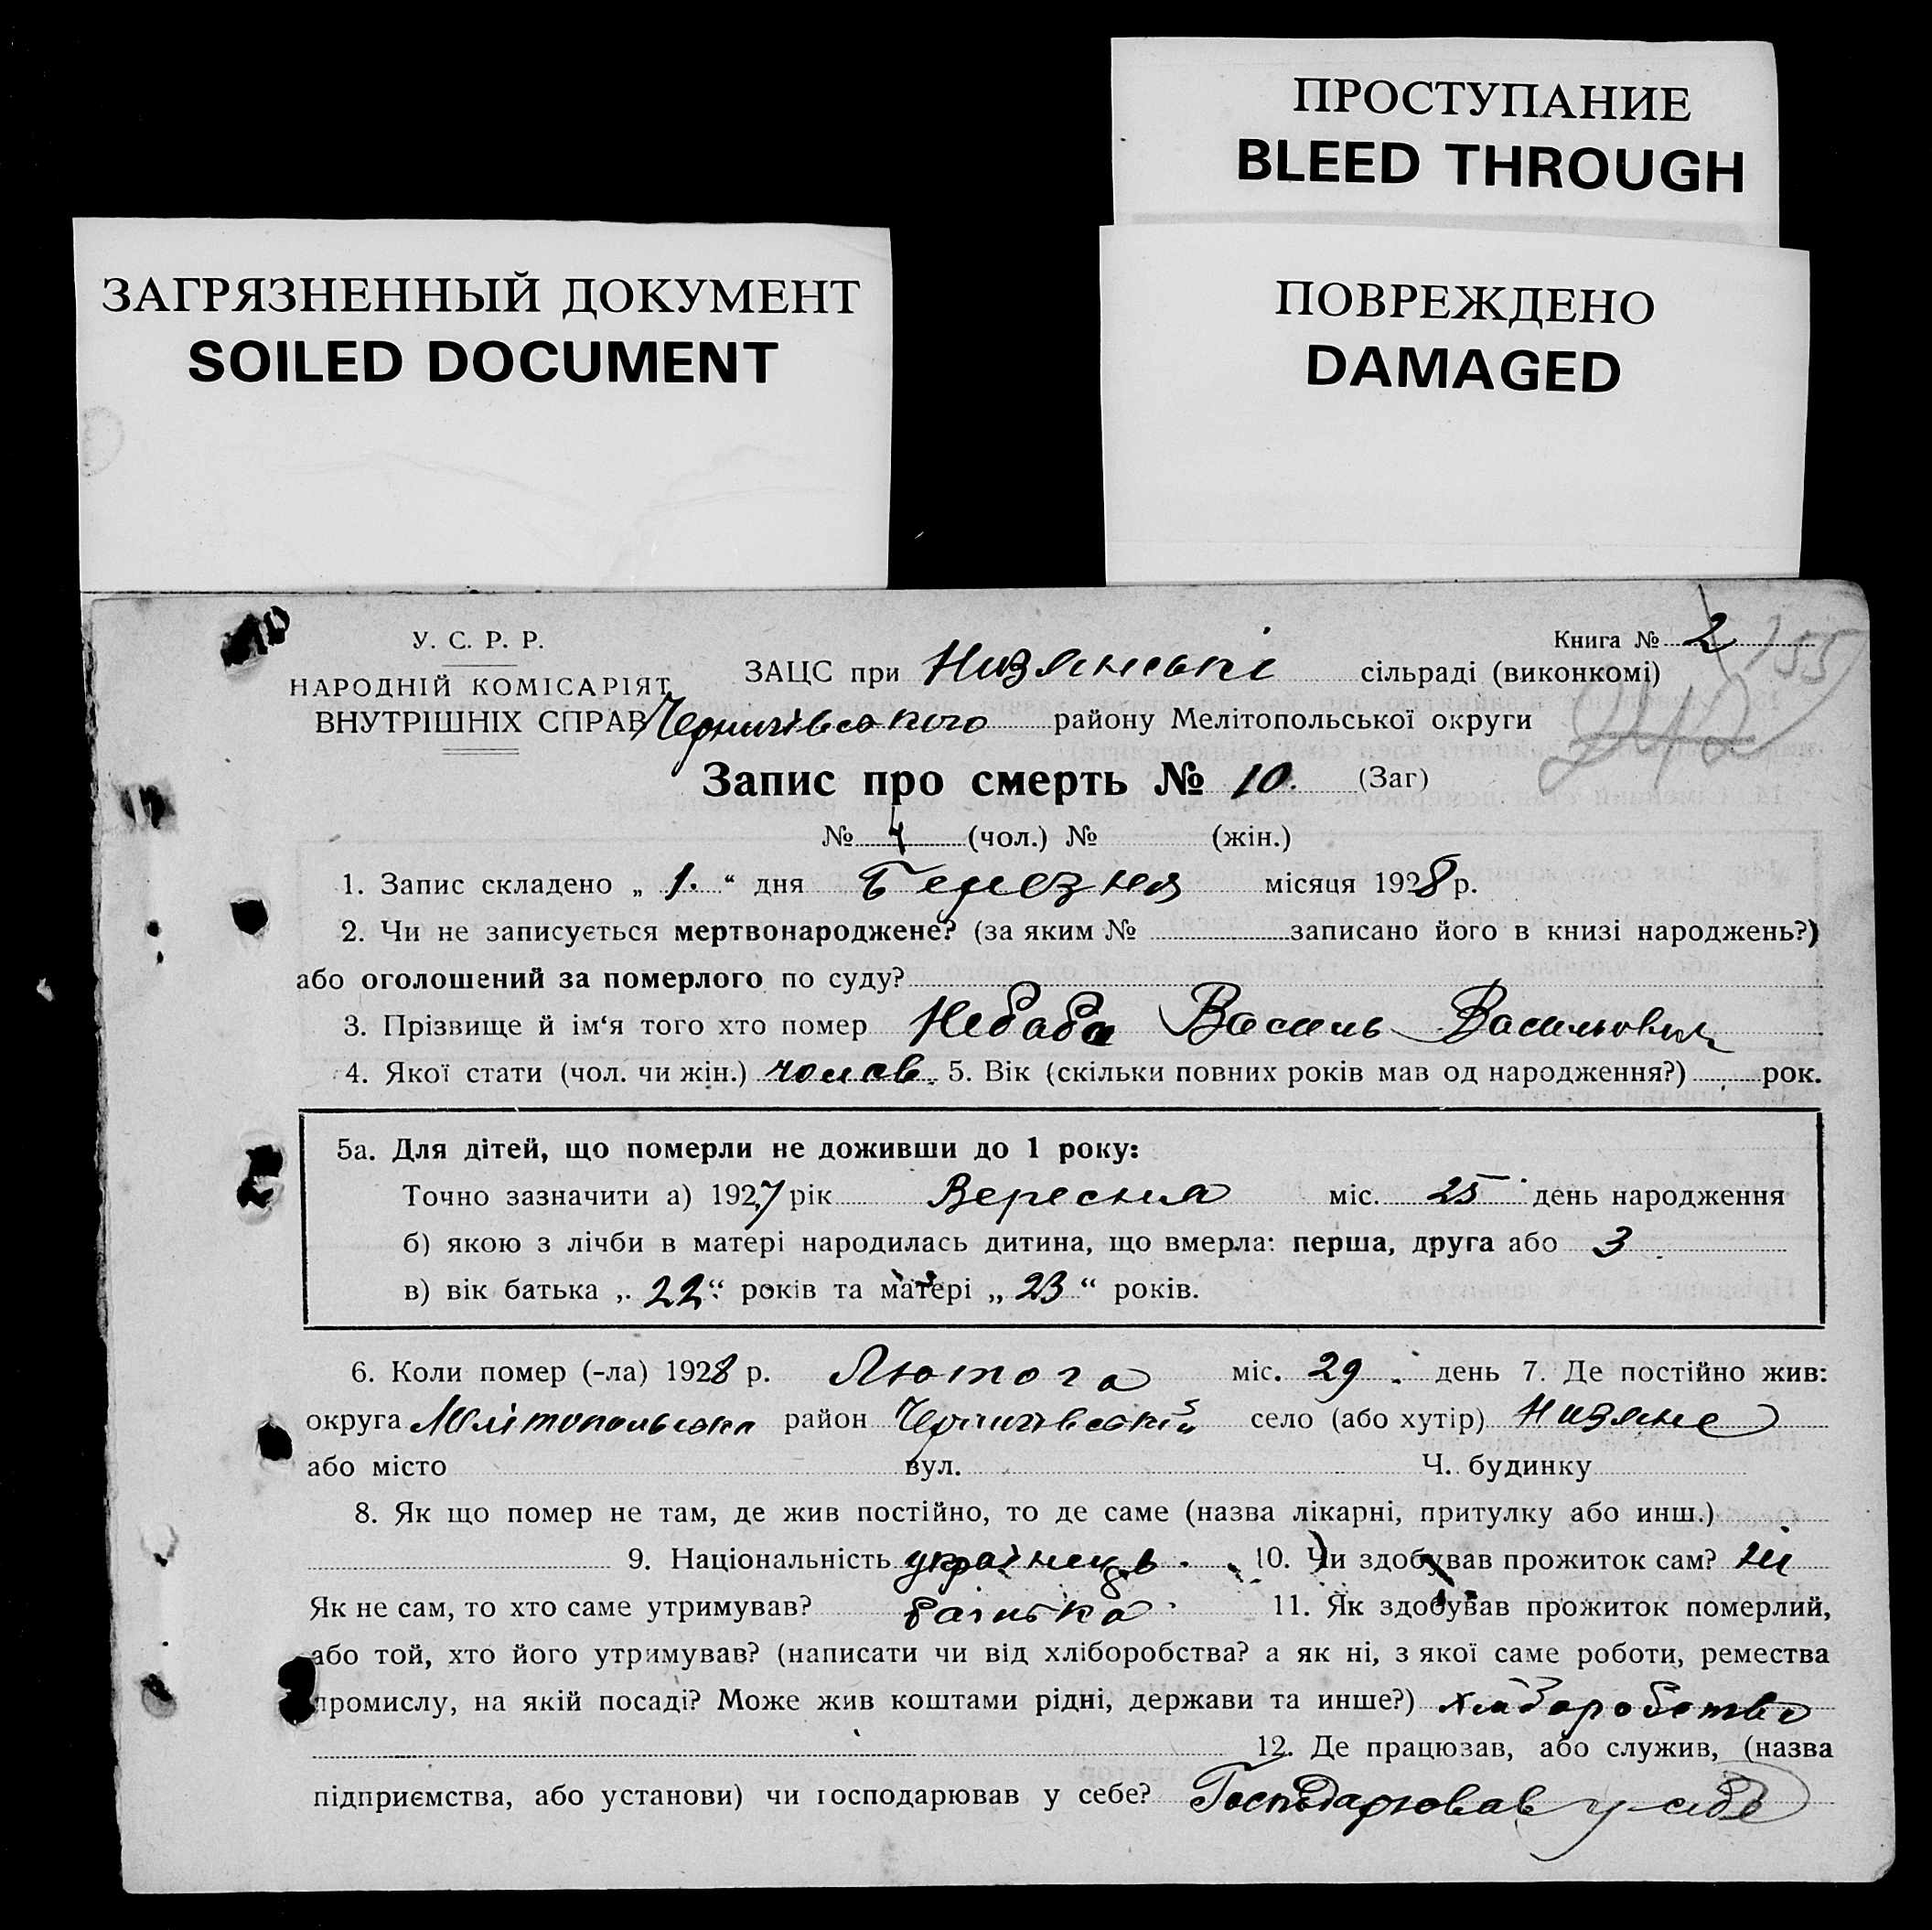 ПРОСТУПАНИЕ
BLEED THROUGH
ЗАГРЯЗНЕННЫЙ ДОКУМЕНТ
SOILED DOCUMENT
ПОВРЕЖДЕНО
DAMAGED
Книга № 2
155
242
У. С. Р. Р.
НАРОДНІЙ КОМІСАРІЯТ
ВНУТРІШНІХ СПРАВ
ЗАЦС при Низянські сільраді (виконкомі)
Чернигівського району Мелітопольської округи
Запис про смерть № 10. (Заг)
№ 4 (чол.) № (жін.)
1. Запис складено „ 1. “ дня Березня місяця 1928 р.
2. Чи не записується мертвонароджене? (за яким № записано його в книзі народжень?)
або оголошений за померлого по суду?
3. Прізвище й ім‘я того хто помер Небаба Василь Васильович
4. Якої стати (чол. чи жін.) чолов. 5. Вік (скільки повних років мав од народження?) рок.
5а. Для дітей, що померли не доживши до 1 року:
Точно зазначити а) 1927 рік Вересня міс. 25 день народження
б) якою з лічби в матері народилась дитина, що вмерла: перша, друга або 3
в) вік батька „ 22 “ років та матері „ 23 “ років.
6. Коли помер (-ла) 1928 р. Лютого міс. 29 день 7. Де постійно жив:
округа Мелітопольська район Чернигівський село (або хутір) Низяне
або місто вул. Ч. будинку
8. Як що помер не там, де жив постійно, то де саме (назва лікарні, притулку або инш.)
9. Національність українець. 10. Чи здобував прожиток сам? ні
Як не сам, то хто саме утримував? батько 11. Як здобував прожиток померлий,
або той, хто його утримував? (написати чи від хліборобства? а як ні, з якої саме роботи, ремества
промислу, на якій посаді? Може жив коштами рідні, держави та инше?) хліборобство
12. Де працював, або служив, (назва
підприємства, або установи) чи господарював у себе? Господарював у себе